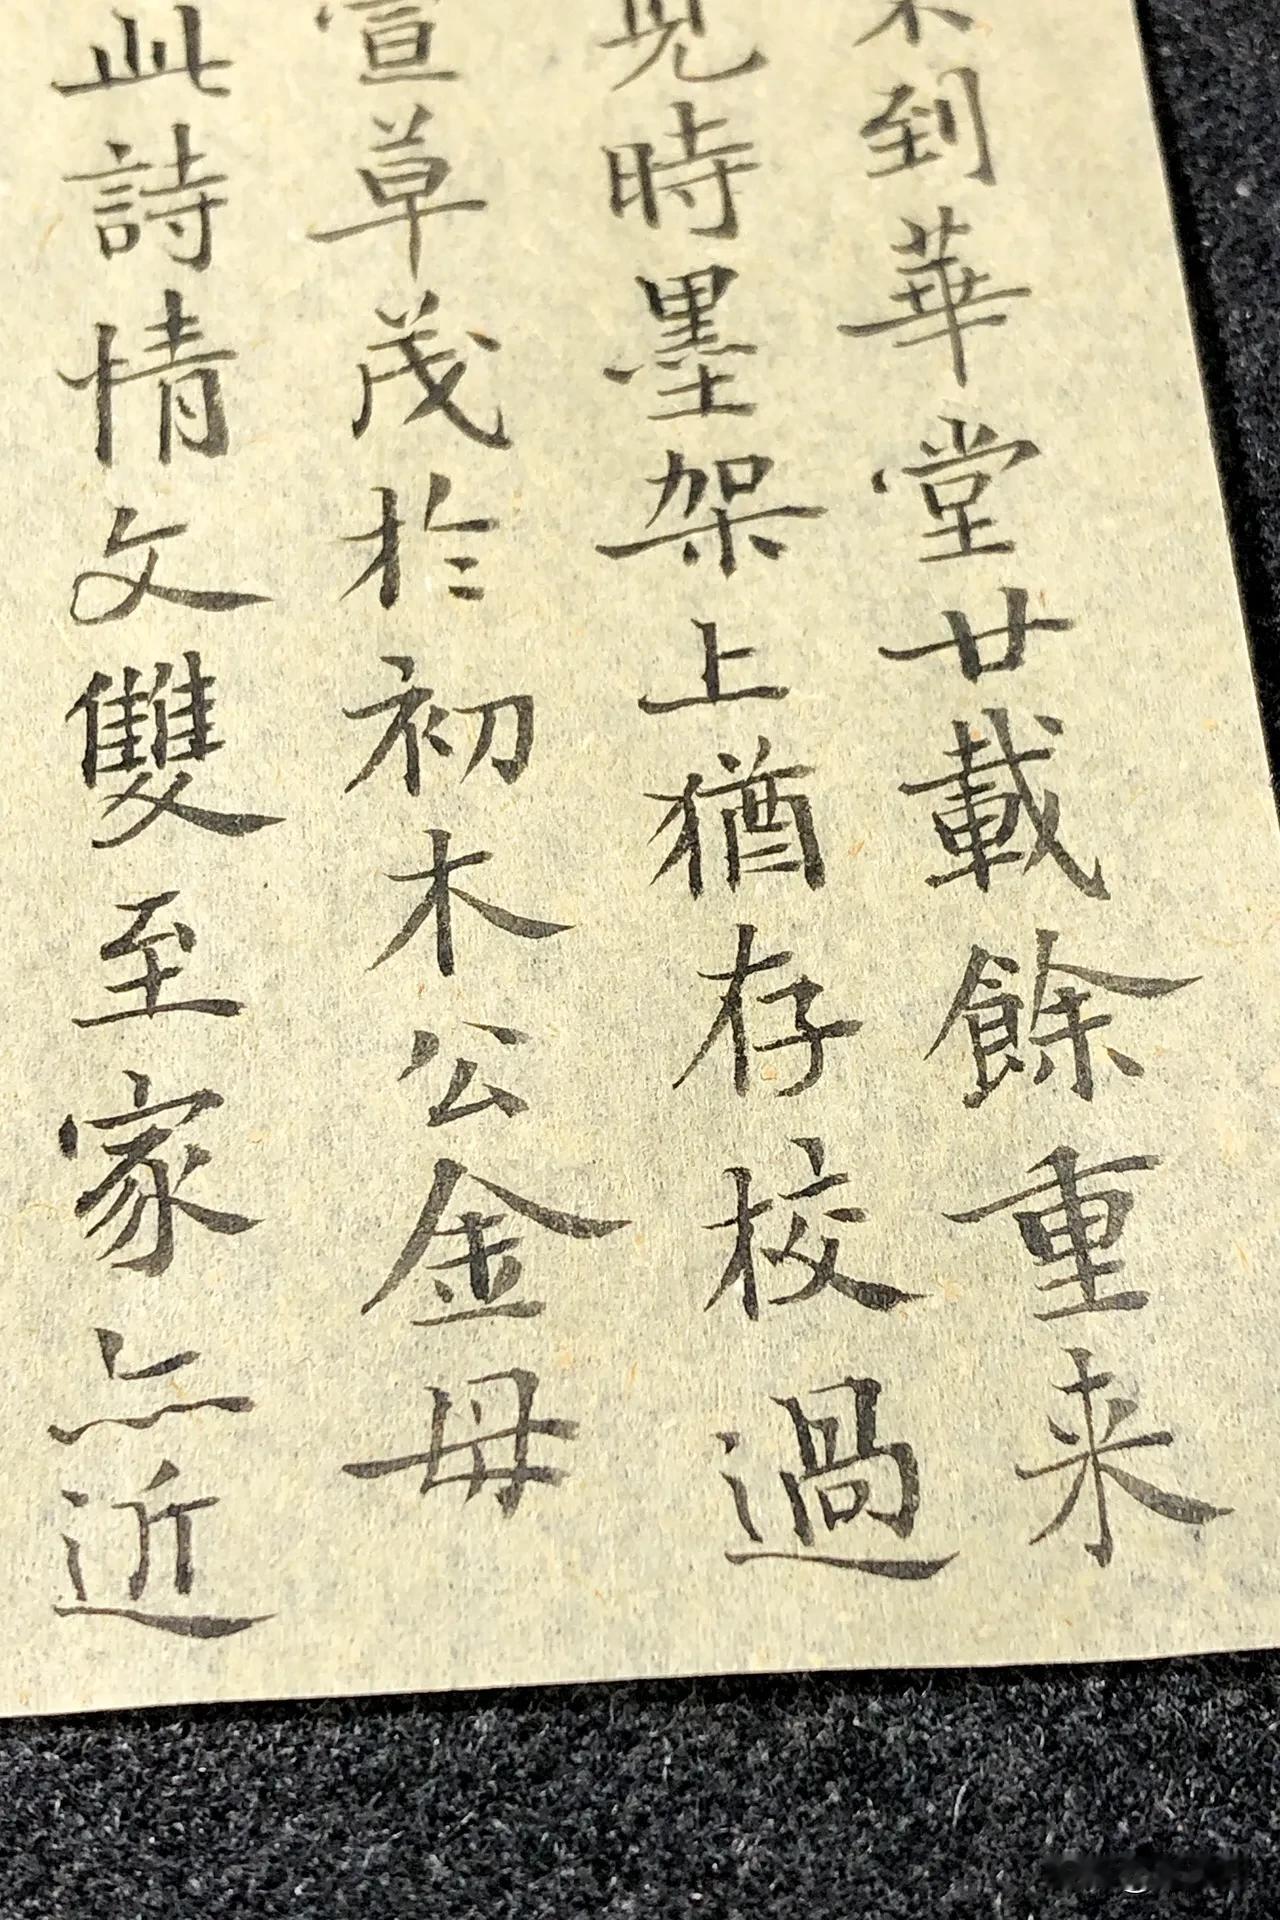 不到華堂廿載餘重来
兒時墨架上猶存校過
萱草茂於初木公金母
此詩情文雙至家亦近